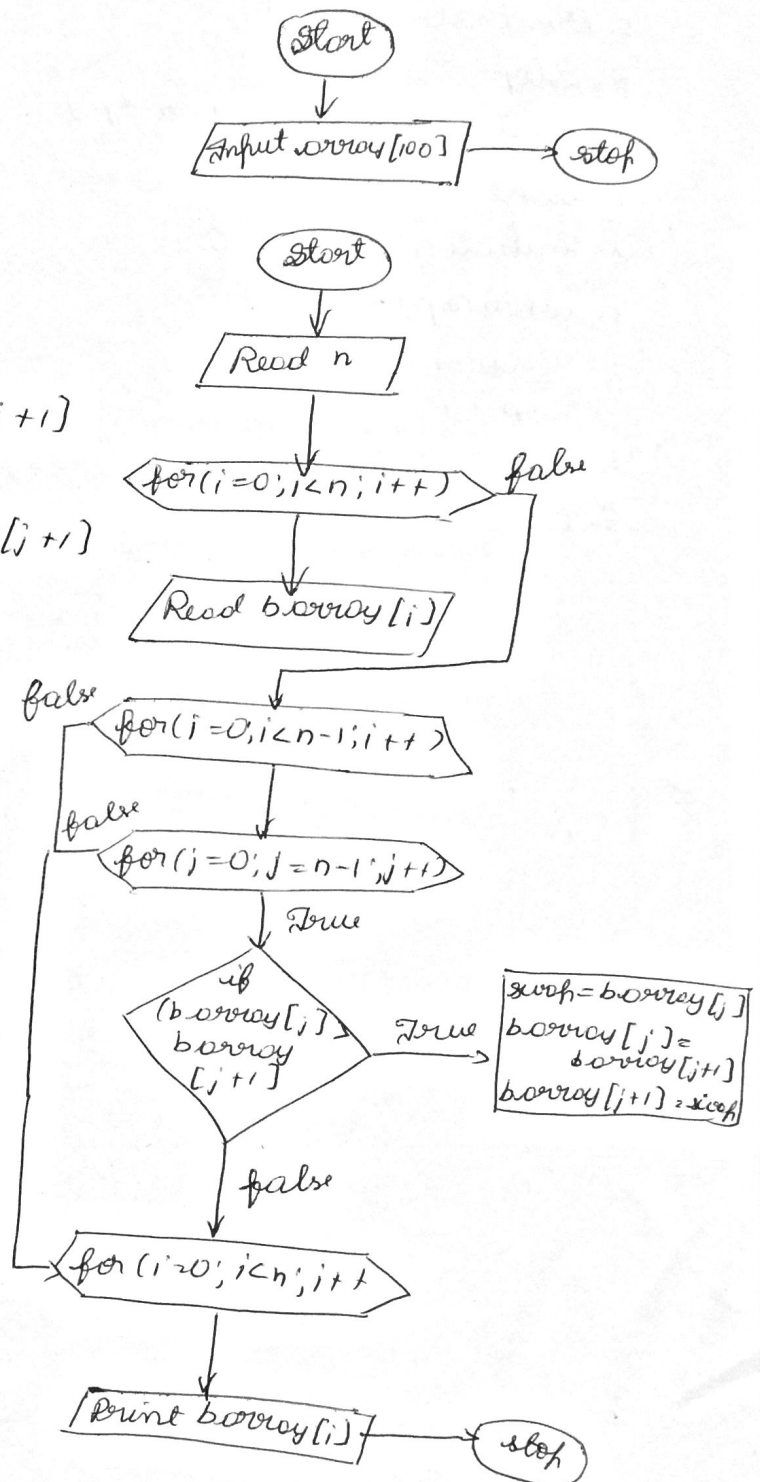 Start
Input array[100]
stop
Start
Read n
+1]
for(i=0;i<n;i++)
false
[j+1]
Read barray[i]
false
for(i=0;i<n-1;i++)
false
for(j=0;j=n-1;j++)
True
if
(barray[j]>
barray
[j+1]
True
swap=barray[j]
barray[j]=
barray[j+1]
barray[j+1]=swap
false
for(i=0;i<n;i++
Print barray[i]
stop